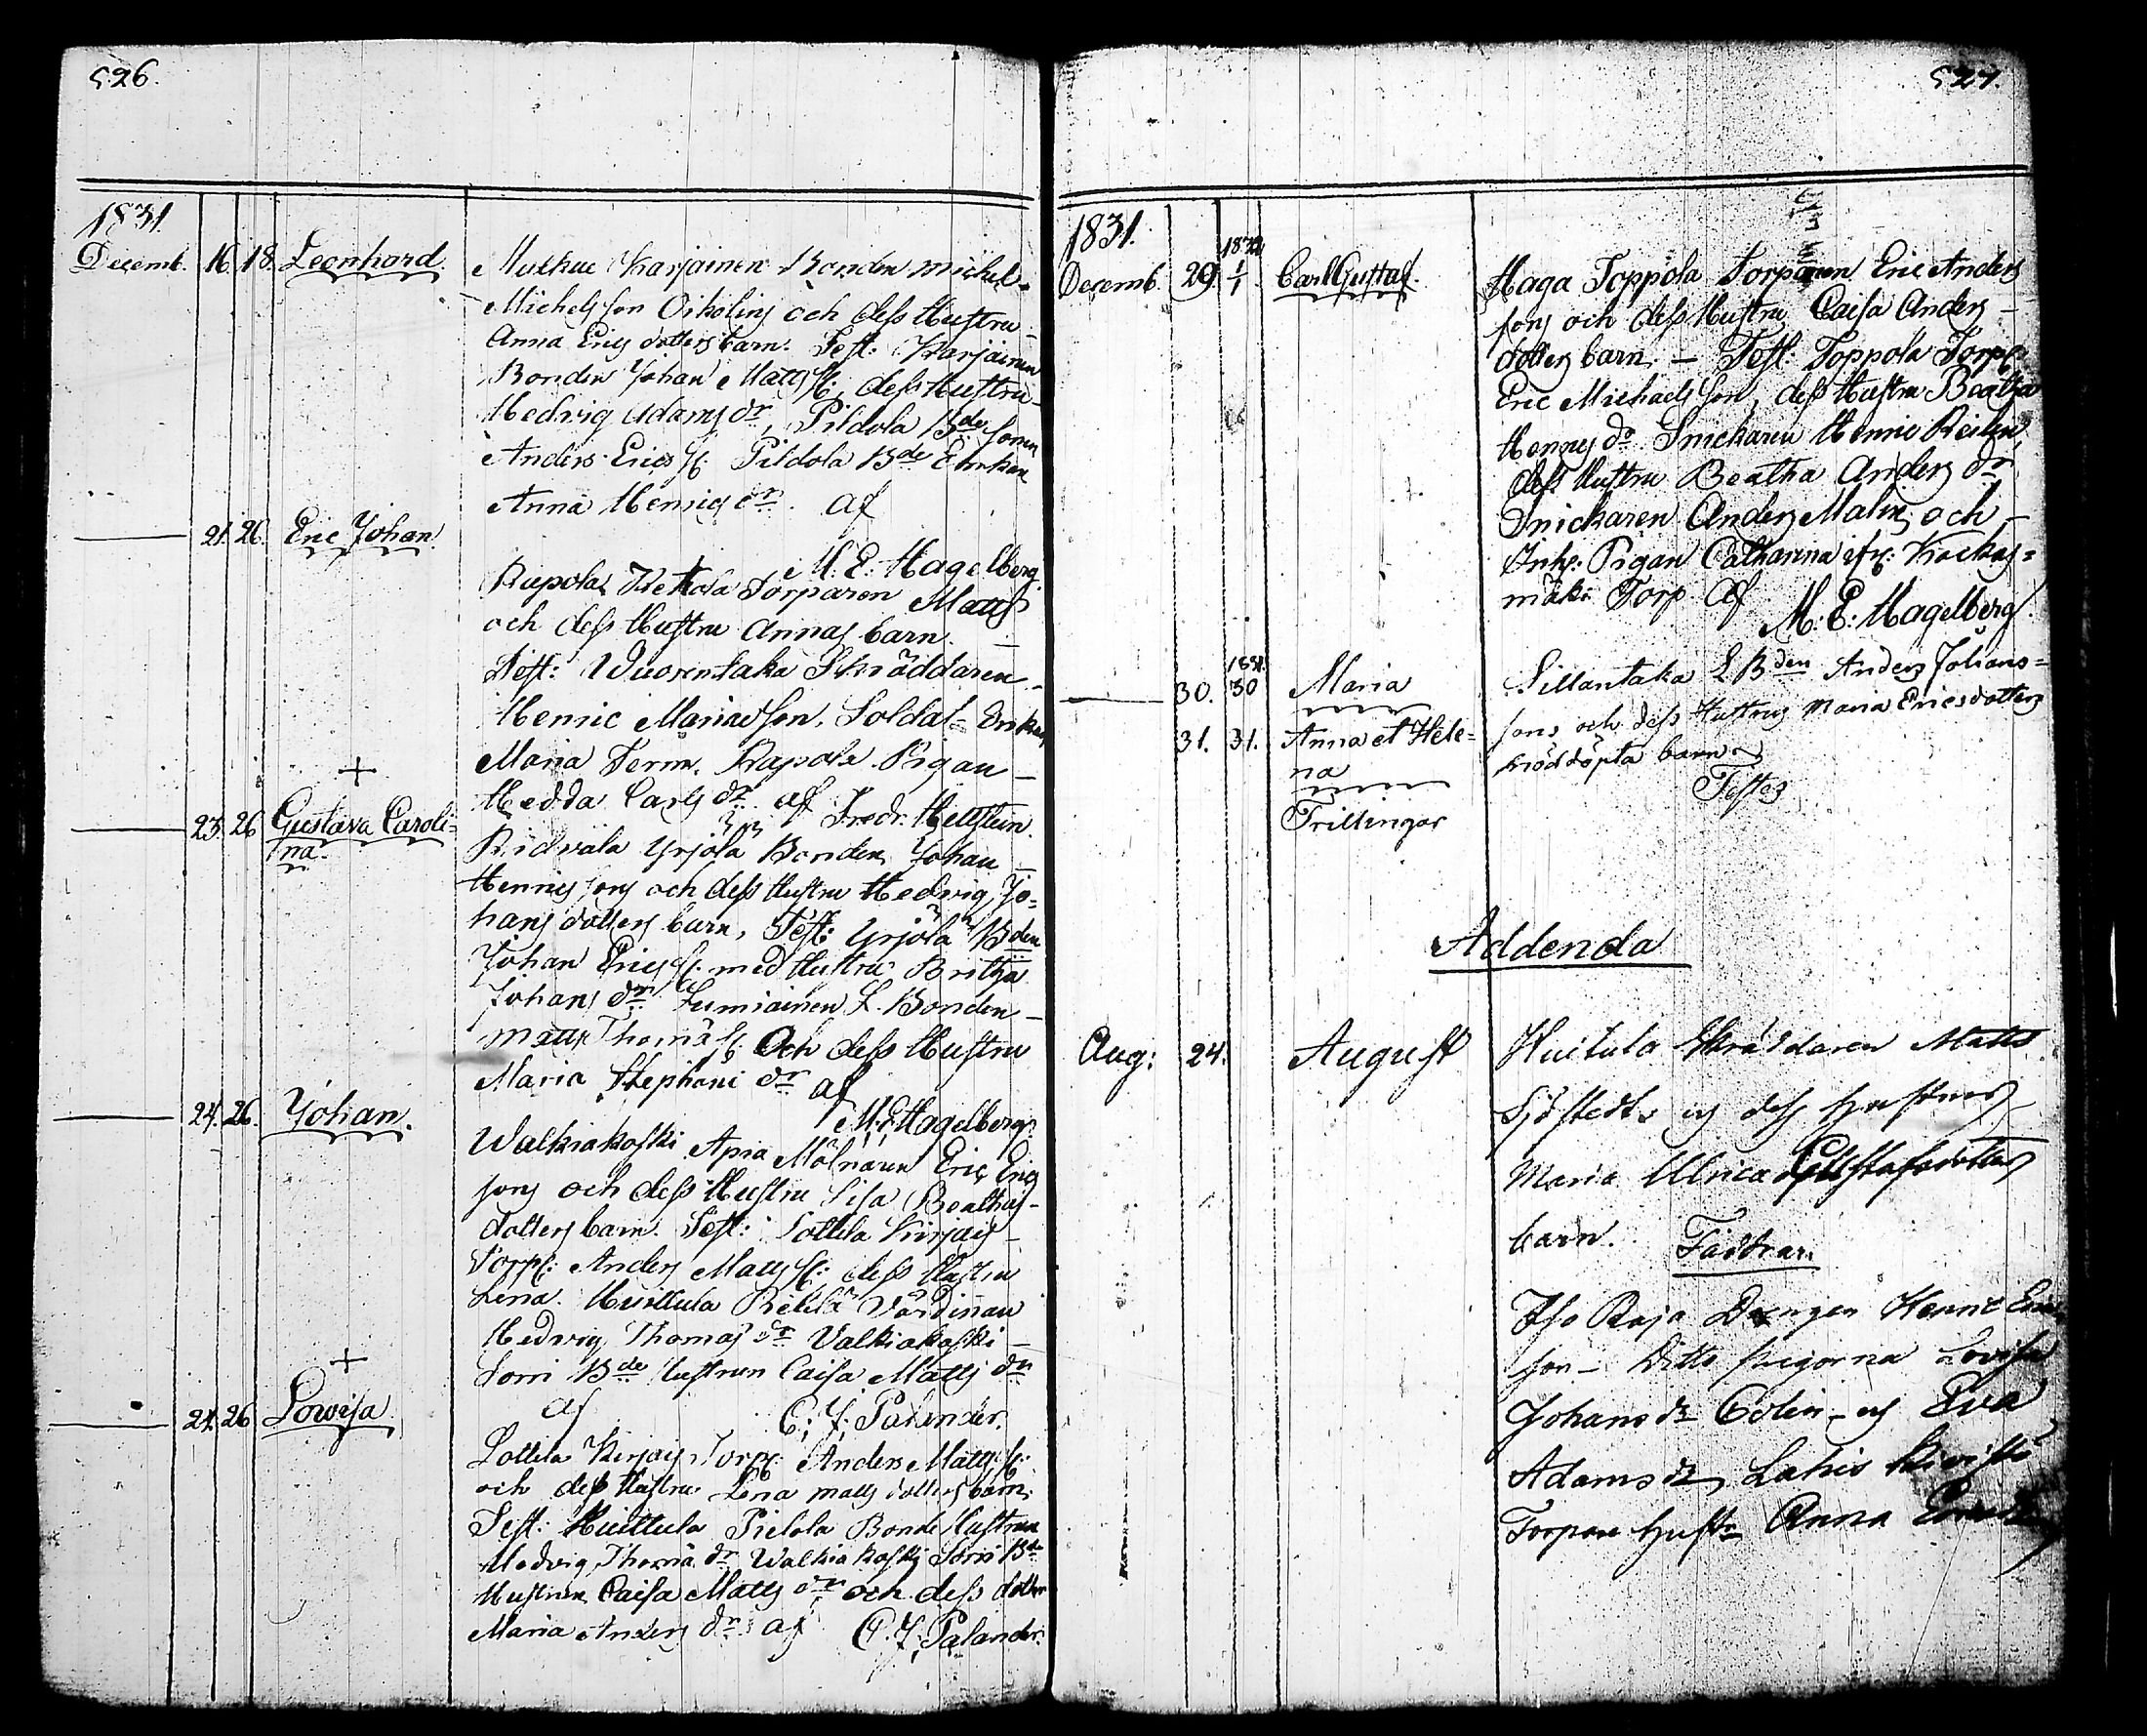 526.
1831.
Decemb. 16. 18. Leonhard.
Mutkue Karjainen Bonden Michel
Michelsson Oikoling och dess Hustru
Anna Erics dotters barn. Test: Karjainen
Bonden Johan Matts S: dess Hustru
Hedvig Adams dr, Pildola Bde Sonen
Anders Erics S. Pildola Bde Enkan
Anna Henrics dr. af
M: E: Hagelberg
21. 26. Eric Johan.
Rapola Torparen Matts
och dess Hustru Annas barn.
Test: Wuorentaka Skräddaren
Henric Mariæ Son, Soldat= Enkan
Maria Term. Rapola Pigan
Hedda Carls dr. af Fredr. Hellsten
+
23. 26 Gustava Caroli=
na.
Ridvala Yrjölä Bonden Johan
Henrics sons och dess Hustru Hedvig Jo=
hans dotters barn, Test: Yrjölä Bden
Johan Erics S. med Hustru Britha
Johans dr. Lumiainen L. Bonden
Matts Thomæ S. Och dess Hustru
Maria Stephani dr af
M: E: Hagelberg.
24. 26. Johan.
Walkiakoski Apia Mölnaren Eric Erics
sons och dess Hustru Lisa Beathas
dotters barn. Test: Sottila Kirjais
Torp: Anders Matts S: dess Hustru
Lena. Huittula Värdinnan
Hedvig Thomas dr Valkiakoski
Sorri Bde Hustrun Caisa Matts dr
af C: J: Palander.
+
24. 26 Lowisa
Sottila Kirjais Torp: Anders Matts S:
och dess Hustru Lena Matts dotters barn.
Test: Huittula Pielola Bonde Hustrun
Hedvig Thomæ dr Walkiakoski Sorri Bde
Hustrun Caisa Matts dr och dess dotter
Maria Anders dr. af C. J: Palander.
527.
1831.
1832
Decemb. 29. 1/1 Carl Gustaf.
Haga Toppola Torparen Eric Anders
sons och dess Hustru Caisa Anders
dotters barn. – Test: Toppola Torp:
Eric Michaels Son, dess Hustru Beatha
Henrics dr. Snickaren Henric
dess Hustru Beatha Anders dr
Snickaren Anders Malin, och
Inh: Pigan Catharina ifr: Kockas=
mäki Torp af
M: E: Hagelberg.
1831.
30. 30 Maria
Sillantaka L Bden Anders Johans=
sons och dess Hustrus Maria Ericsdotters
nöddöpta barn
Testes
31. 31. Anna et Hele=
na
Trillingar
Addenda
Aug: 24. August
Huitula Skräddaren Matts
Sjöstedts og dess hustrus
Maria Ulrica Gustafsdotters
barn. Faddrar.
Iso Raja Drengen Henric Erics
son – Ditto pigorna Lovisa
Johans dr Colin – og Eva
Adams dr, Lahis
Torpare hustr Anna